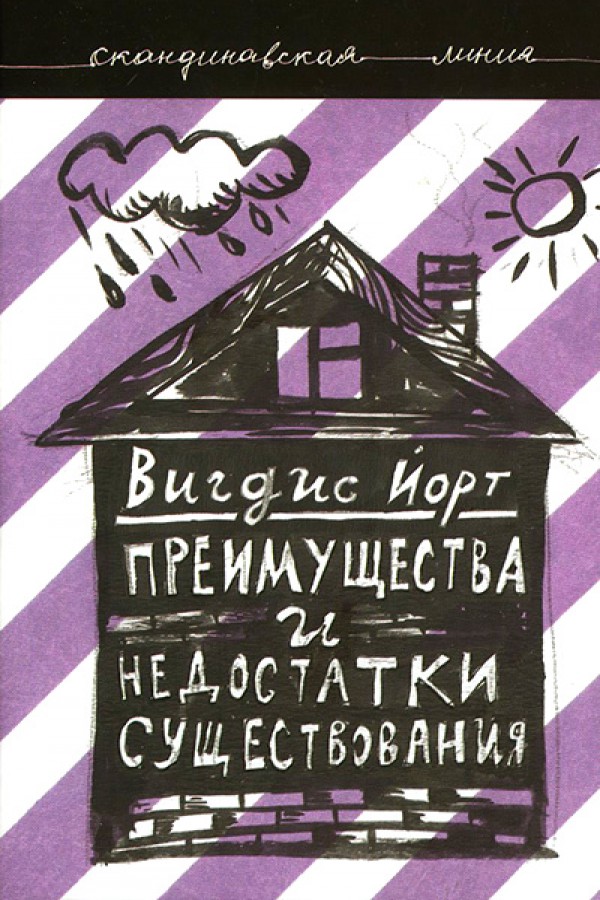 скандинавская линия
Вигдис Йорт
ПРЕИМУЩЕСТВА
и
НЕДОСТАТКИ
СУЩЕСТВОВАНИЯ